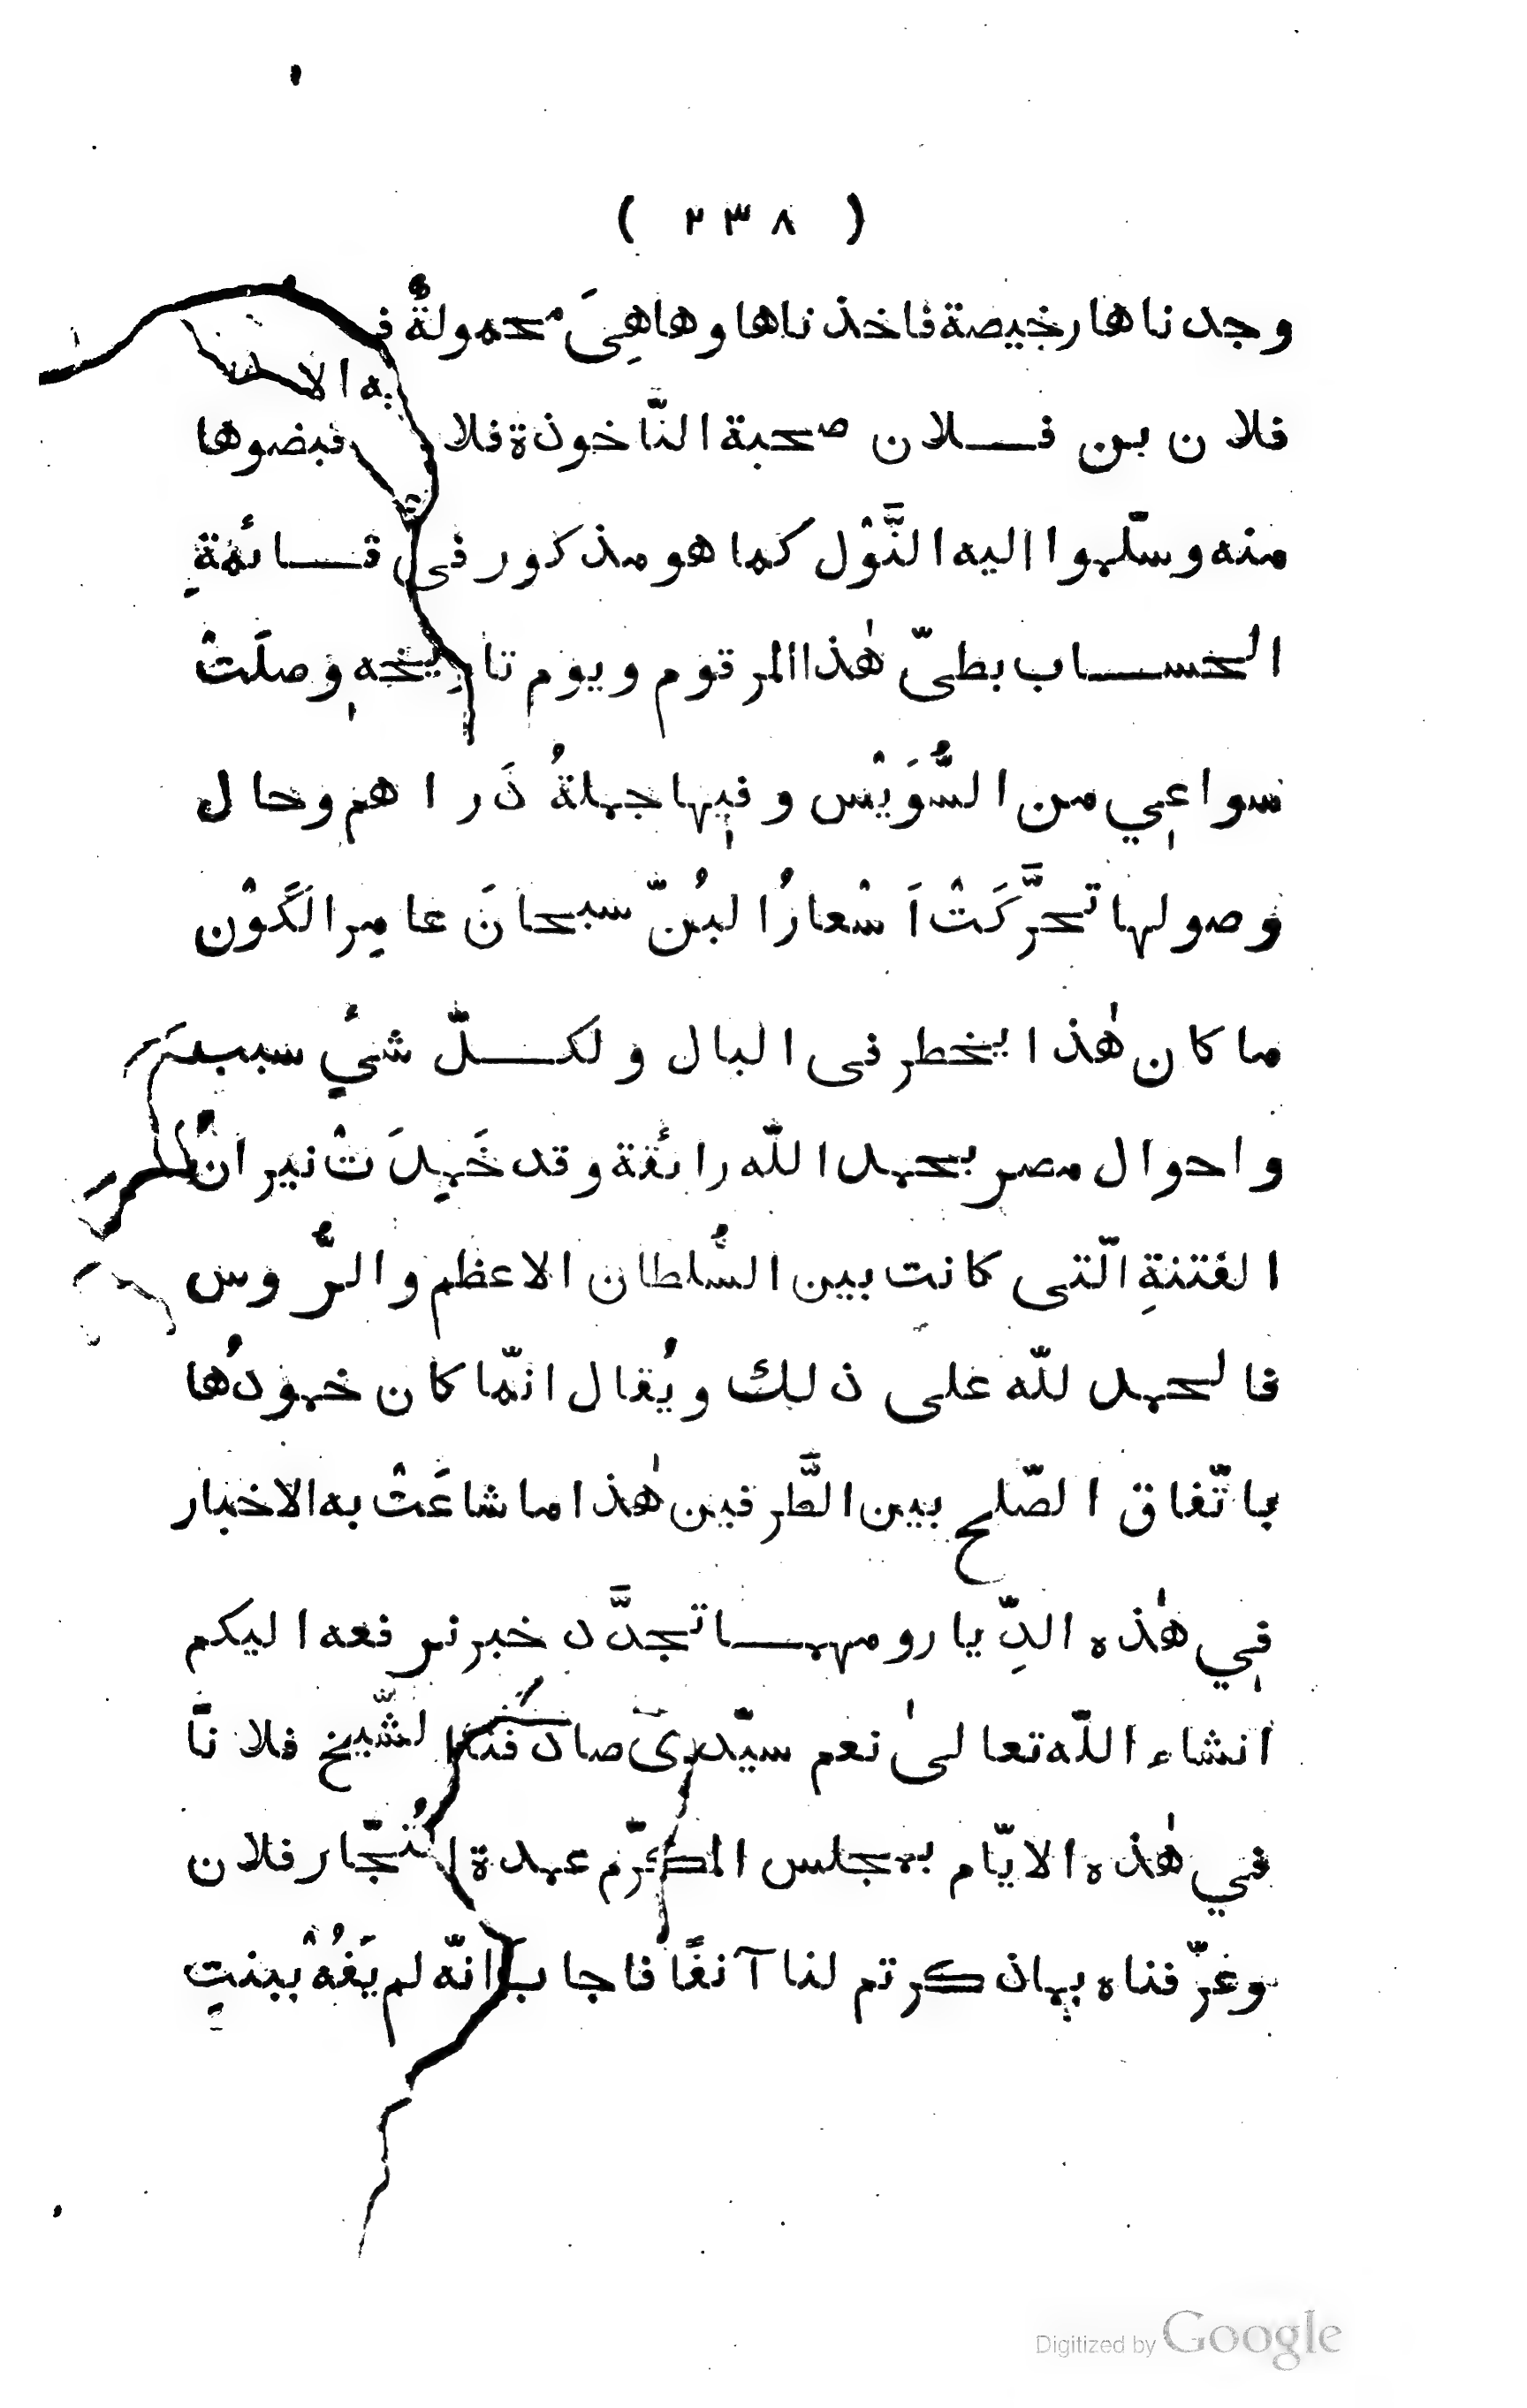 ( ٢٣٨ )
وجدناها رخيصة فاخذناها وهاهِىَ محمولةٌ
فلان بن فـلان صحبة النّاخوذة فلا فبضوها
منه وسلّموا اليه النَّوْل كما هو مذكور فى قـائمةِ
الحسـاب بطىّ هٰذاالمرقوم ويوم تاريخه وصلَتْ
سواعي من السُّوَيْس وفيها جملةُ دَراهم وحال
وصولها تحرَّكَتْ اَسْعارُ البُنّ سبحانَ عامِر الكَوْن
ما كان هٰذا يخطر فى البال ولكـلّ شئ سبب
واحوال مصر بحمد اللّه رائقة وقد خَمِدَتْ نيران
الفتنةِ الّتى كانت بين السُّلطان الاعظم والرُّوس
فالحمد للّه على ذلك ويُقال انّما كان خمودُها
باتّفاق الصّلح بين الطَّرفين هٰذا ما شاعَتْ به الاخبار
في هٰذه الدِّيار ومهمـا تجدَّد خبر نرفعه اليكم
انشاء اللّه تعالىٰ نعم سيّدى صادفنا الشّيخ فلانًا
في هٰذه الايّام بمجلس المكرّم عمدة التُجّار فلان
وعرّفناه بماذكرتم لنا آنفًا فاجاب انّه لم يَفُهْ ببنتِ
Digitized by Google